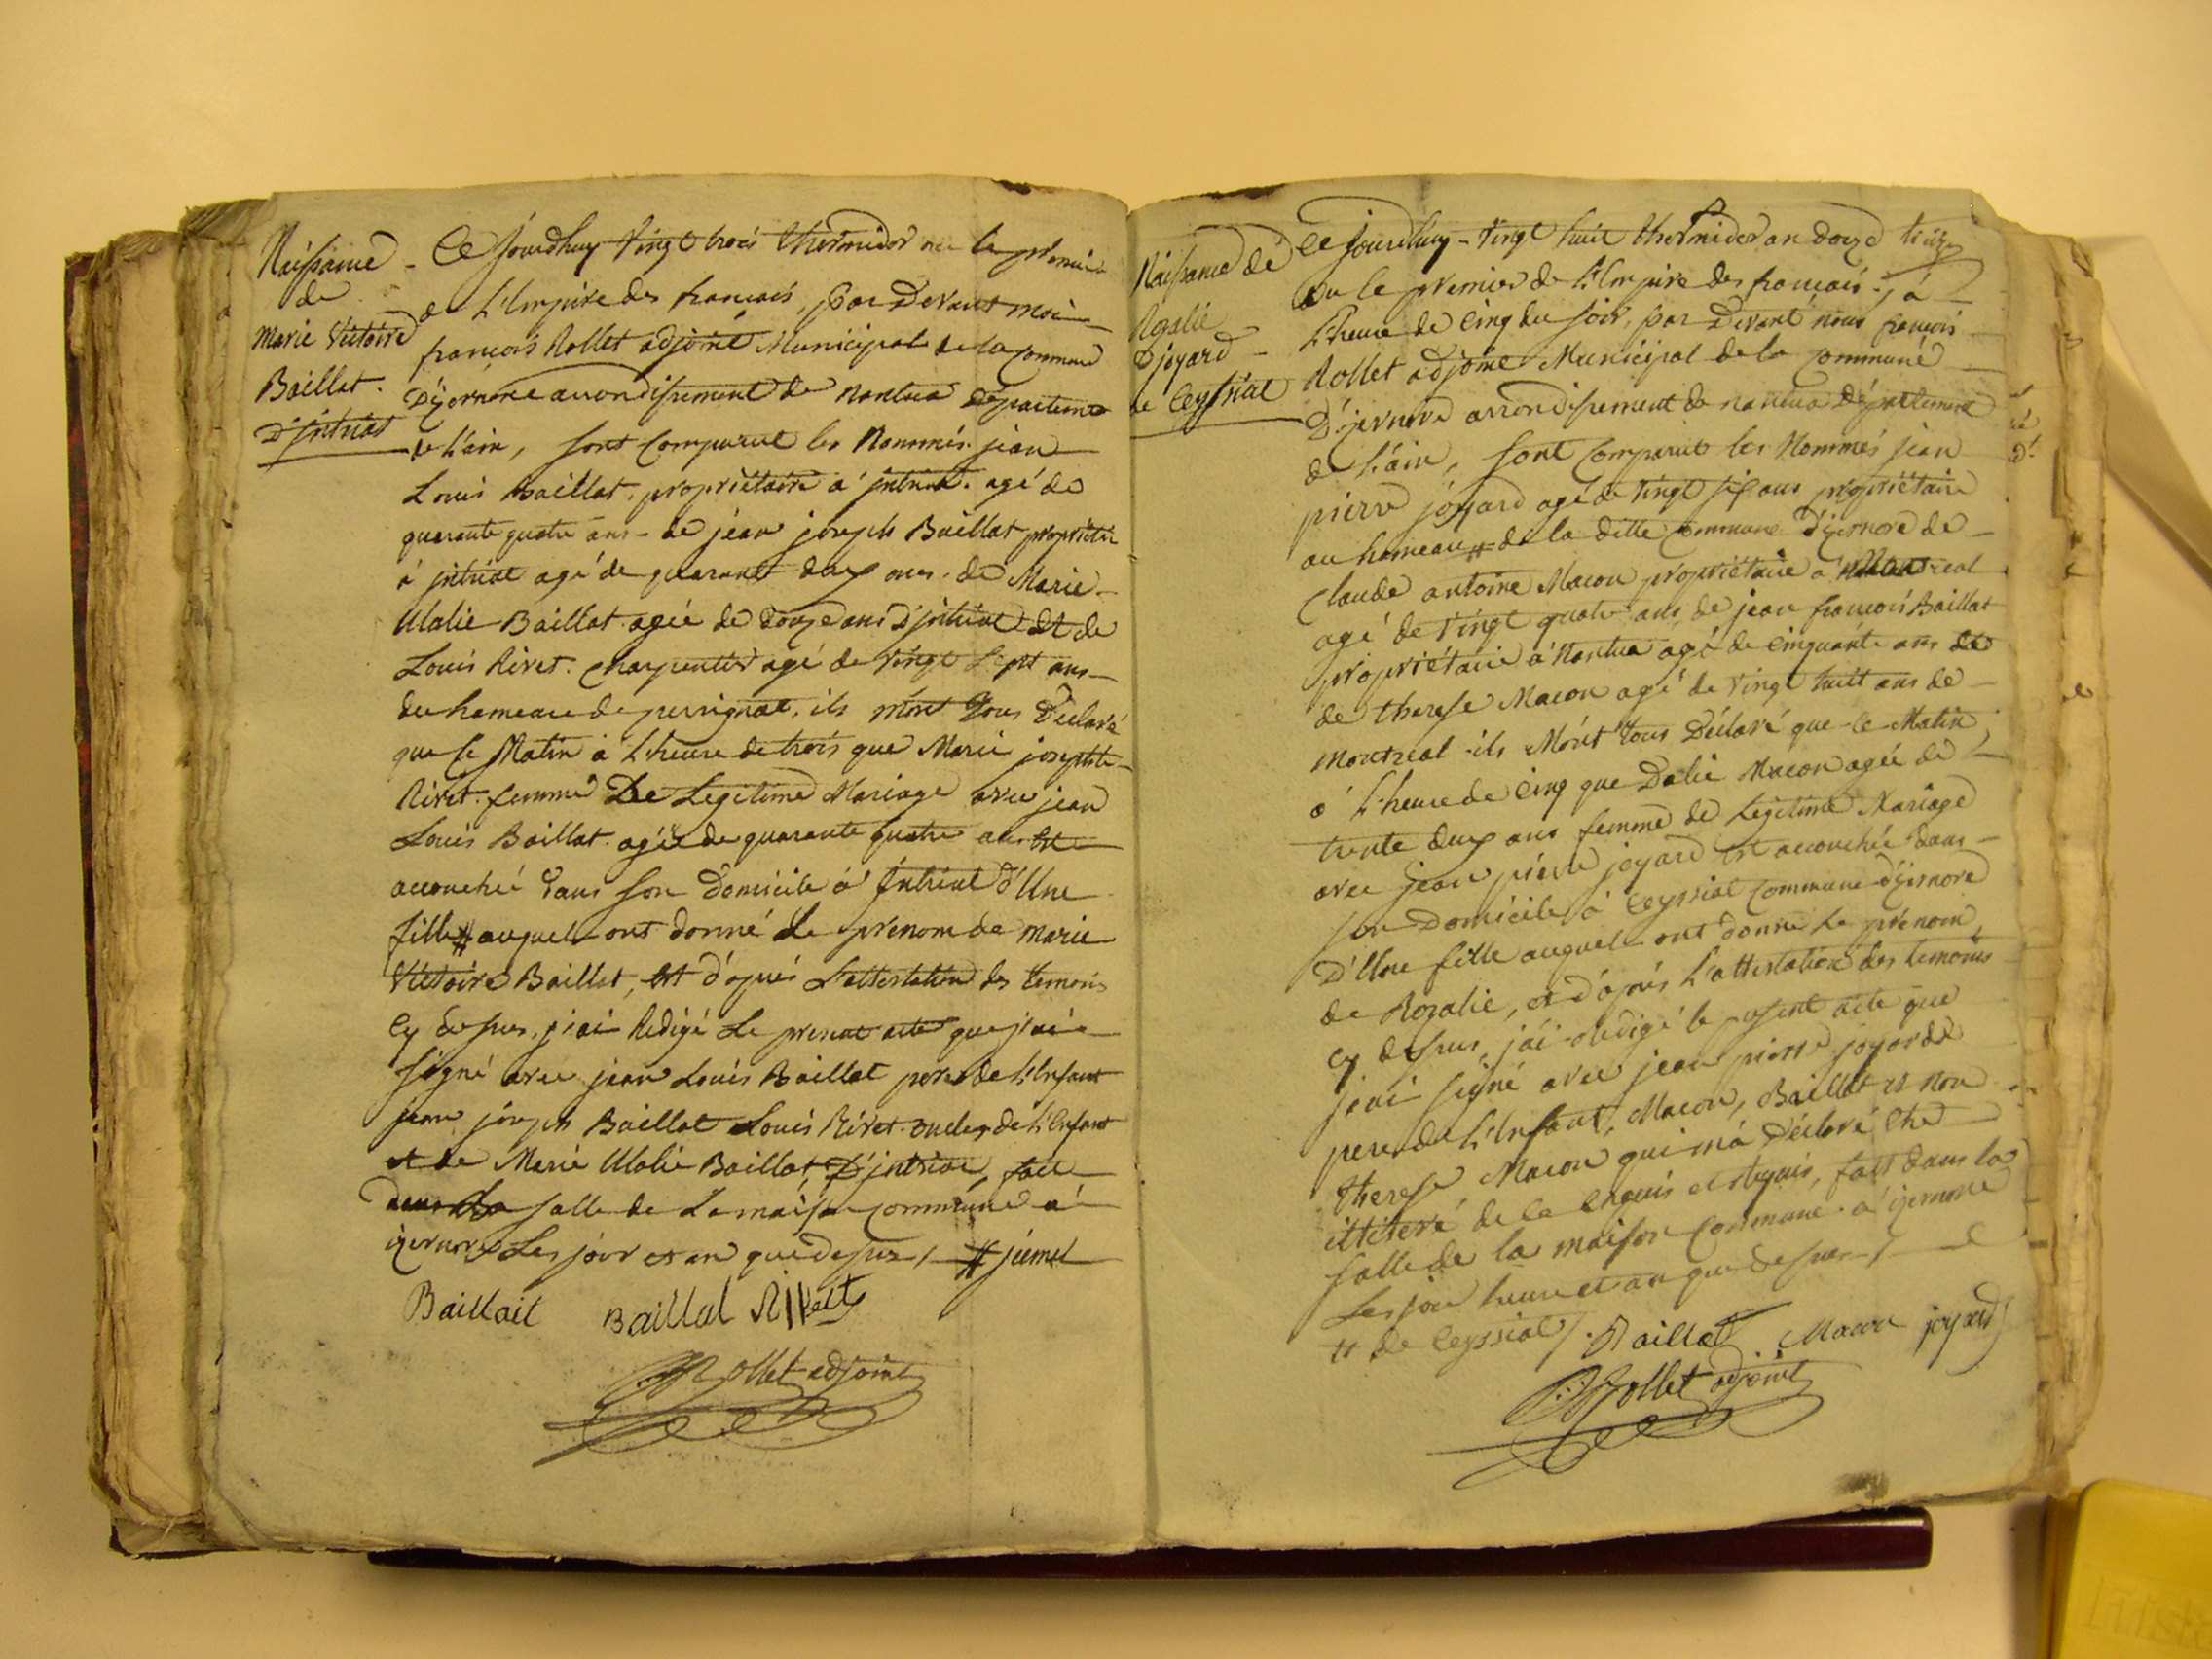 Naissance
de
Marie Victoire
Baillat.
D'intriat
Ce Jourdhuy Vingt trois thermidor le premier
de L'Empire des francais, par Devant moi
francois Rollet adjoint Municipal de la Commune
D'yzernore arrondissement de Nantua Departement
de L'ain, sont Comparut les Nommés jean
Louis Baillat, propriétaire a intriat. agé de
quarante quatre ans - de jean joseph Baillat propriétaire
á intriat agé de quarante deux ans. de Marie
Ulalie Baillat agée de douze ans D'intriat Et de
Louis Rivet. Charpentier agé de Vingt Sept ans
du hameau de perrignat, ils m'ont Tous Declaré
que Ce Matin a L'heure de trois que Marie josephte
Rivet. femme De Legitime Mariage avec jean
Louis Baillat. agée de quarante quatre ans Est
accouchée dans son Domicile á Intriat d'Une
fille # auquel ont donné Le prenom de marie
Victoire Baillat, Et d'apres L'attestation des temoins
Cy dessus, j'ai Redigé Le present acte que j'ai
signé avec jean Louis Baillat pere de L'Enfant
jean joseph Baillat Louis Rivet oncles de L'Enfant
et de Marie Ulalie Baillat, D'intriat, fait
dans La salle de La maison Commune á
izernore Les jour et an que dessus / # jumel
Baillait Baillat Rivett
Rollet adjoint
Naissance de
Rozalie
D joyard
de Ceyssiat
treize
Ce Jourdhuy - Vingt huit thermidor an douze
ou le premier de L'Empire des francais, á
L'heure de Cinq du soir, par Devant nous francois
Rollet adjoint Municipal de la Commune
D'izernore arrondissement de nantua Département
de L'ain, sont Comparut les Nommés jean
pierre joyard agé de Vingt six ans propriétaire
au hameau # de la ditte Commune D'yzernore de
Claude antoine Macon propriétaire a Montreal
agé de Vingt quatre ans, de jean francois Baillat
propriétaire á Nantua agé de Cinquante ans Et
de therese Macon agé de Vingt huit ans de
Montreal ils M'ont Tous Déclaré que Ce Matin
á L'heure de Cinq que Dalie Macon agée de
trente deux ans femme de Legitime Mariage
avec jean pierre joyard Est accouchée dans
son Domicile á Ceyssiat Commune d'yzernore
D'Une fille auquel ont donné Le prenom
de Rozalie, et d'apres L'attestation des temoins
Cy dessus, j'ai redigé le present acte que
j'ai signé avec jean pierre joyard
pere de L'Enfant, Macon, Baillat et non
therese Macon qui m'a Déclaré Etre
illiteré de ce Enquis et requis, fait dans la
salle de la maison Commune á izernore
Les jour heure et an que dessus /
# de Ceyssiat / Baillat Macon joyard
Rollet adjoint